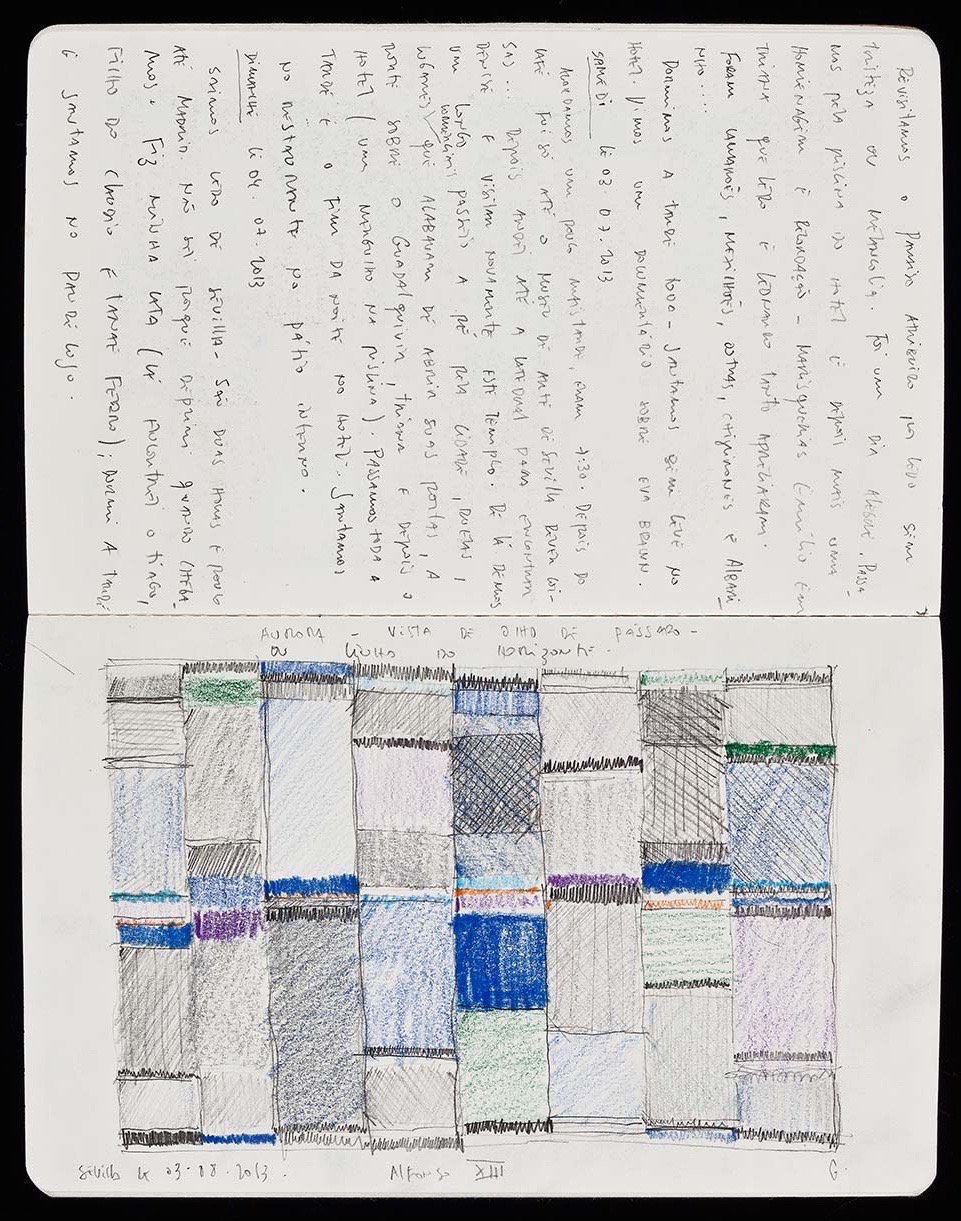 REVISITAMOS O SEM
TRISTEZA OU MELANCOLIA. FOI UM DIA ALEGRE. PASSA-
MOS PELA PISCINA DO HOTEL E DEPOIS MAIS UMA
HOMENAGEM E RECORDAÇÃO - MARISQUERIAS EMILIO EM
TRIANA QUE LEDO E LEONARDO TANTO APRECIARAM.
FORAM MEXILHÕES, OSTRAS, CHIPIRONES E ALBARI-
NHO....
DORMIMOS A TARDE TODA - JANTAMOS BEM LEVE NO
HOTEL. VIMOS UM DOCUMENTÁRIO SOBRE EVA BRAUN.
SAMEDI LE 03 07. 2013
ACORDAMOS UM POUCO MAIS TARDE, ERAM 7:30. DEPOIS DO
CAFÉ FUI SÓ ATÉ O MUSEU DE ARTE DE SEVILLA REVER
SAS... DEPOIS ANDEI ATÉ A CATEDRAL PARA ENCONTRAR
DENISE E VISITAR NOVAMENTE ESTE TEMPLO. DE LÁ DEMOS
UM LONGO PASSEIO A PÉ PELA CIDADE, RUELAS,
LUGARES QUE ACABAVAM DE ABRIR SUAS PORTAS, A
PONTE SOBRE O GUADALQUIVIR, TRIANA E DEPOIS O
HOTEL (UM MERGULHO NA PISCINA). PASSAMOS TODA A
TARDE E O FIM DA NOITE NO HOTEL. JANTAMOS
NO RESTAURANTE NO PÁTIO INTERNO.
DIMANCHE LE 04. 07. 2013
SAIMOS CEDO DE SEVILLA - SÃO DUAS HORAS E POUCO
ATÉ MADRID. NÃO SEI PORQUE DEPRIMI QUANDO CHEGA-
MOS. FIZ MINHA (LÁ ENCONTREI O TIAGO,
FILHO DO CLAUDIO E TANAÉ FERRO); DORMI A TARDE
E JANTAMOS NO PAU DE LOJO.
AURORA - VISTA DE OLHO DE PÁSSARO -
OU LINHA DO HORIZONTE.
SEVILLA LE 03.08.2013. ALFONSO XIII